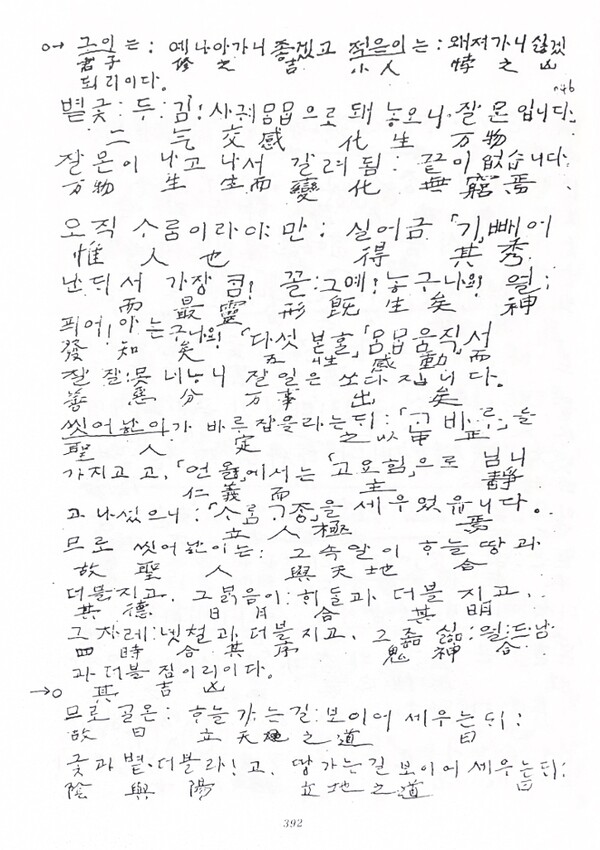 그이는: 예나아가니 좋겠고 적은이는: 왜져가니 싫겠
君子 修之 吉 小人 悖之 凶
되리이다.
n46
별긏: 두: 김! 사귀 몸몸으로 돼 놓오니 잘몬입니다.
二 气 交感 化生 万物
잘몬이 나고 나서 갈려됨: 끝이 없습니다
万物 生 生而 變化 無窮焉
오직 스룸이라야만: 실어금 「기」빼어
惟 人也 得 其秀
난디서 가장 큼! 꼴:그예! 놓구나의! 얼:
而 最靈 形 旣 生 矣 神
피어! 아는구나의! 「다섯 븓홀」「몸몸움직」서
發 知 矣 五性 感動 而
잘 잘:못 네눟니 잘일은 쏘다집니다.
善 惡 分 万事 出 矣
씻어난이가 바루잡을라는디: 「고 바루」을
聖人 定 之以中正
가지고고, 「언 올」에서는 「고요힘」으로 님니
仁義 而 主 靜
과나셨으니: 「스룸 ᄀ종」을 세우었읍니다.
立 人極 焉
므로 씻어난이는: 그속알이 하늘땅과
故 聖人 與天地 合
더블지고, 그 붉음이: 히둘과 더블지고,
其德 日月 合 其明
그차례: 넷철과 더블지고, 그 좋싫: 얼:드남
四時 合 其序 鬼神 合
과 더블 짐이리이다.
其吉凶
므로 골온: 하늘가는길: 보이어 세우는디:
故曰 立天地之道 曰
긏과 볕·더블라! 고, 땅가는길 보이어 세우는디:
陰與陽 立地之道 曰
392